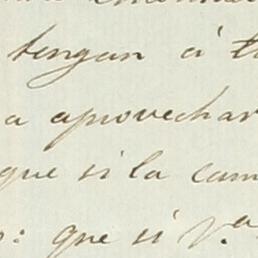 tengan á
a aprovechar
que si la cam
o: que si V.ª